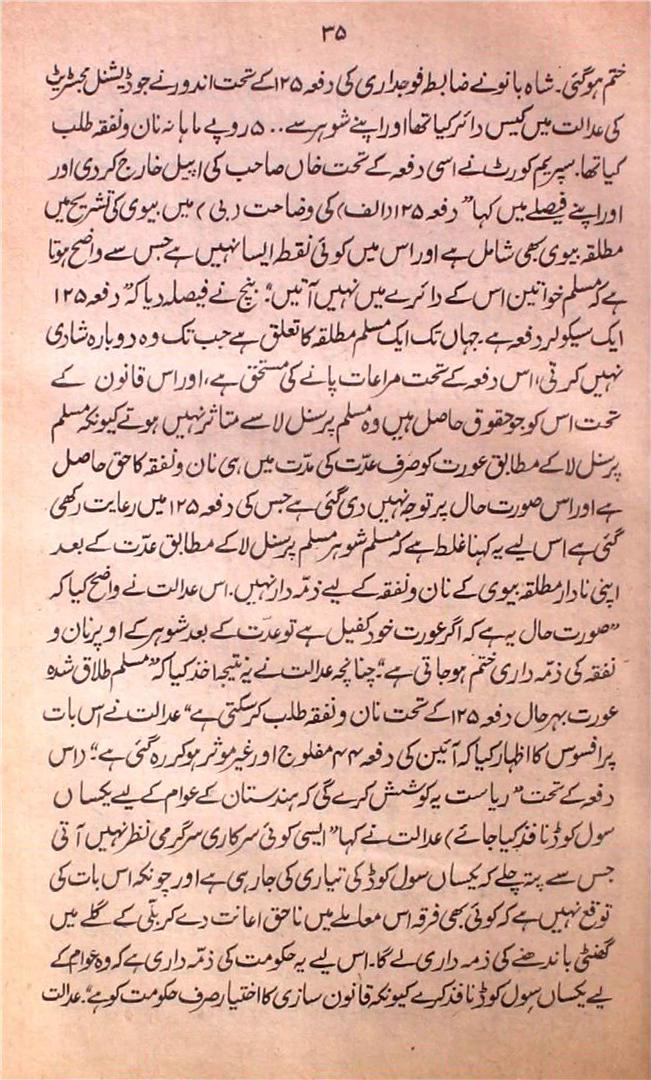 ۳۵
ختم ہوگئی۔ شاہ بانو نے ضابطہ فوجداری کی دفعہ ۱۲۵ کے تحت اندور نے جوڈیشنل مجسٹریٹ
کی عدالت میں کیس دائر کیا تھا اور اپنے شوہر سے ۵۰۰ روپے ماہانہ نان ونفقہ طلب
کیا تھا۔ سپریم کورٹ نے اسی دفعہ کے تحت خاں صاحب کی اپیل خارج کردی اور
اور اپنے فیصلے میں کہا ”دفعہ ۱۲۵ (الف) کی وضاحت (بی) میں بیوی کی تشریح میں
مطلقہ بیوی بھی شامل ہے اور اس میں کوئی نقطہ ایسا نہیں ہے جس سے واضح ہوتا
ہے کہ مسلم خواتین اس کے دائرے میں نہیں آتیں“۔ بنچ نے فیصلہ دیا کہ ”دفعہ ۱۲۵
ایک سیکولر دفعہ ہے۔ جہاں تک ایک مسلم مطلقہ کا تعلق ہے جب تک وہ دوبارہ شادی
نہیں کرتی، اس دفعہ کے تحت مراعات پانے کی مستحق ہے، اور اس قانون کے
تحت اس کو جو حقوق حاصل ہیں وہ مسلم پرسنل لا سے متاثر نہیں ہوتے کیونکہ مسلم
پرسنل لا کے مطابق عورت کو صرف عدّت کی مدّت میں ہی نان ونفقہ کا حق حاصل
ہے اور اس صورت حال پر توجہ نہیں دی گئی ہے جس کی دفعہ ۱۲۵ میں رعایت رکھی
گئی ہے اس لیے یہ کہنا غلط ہے کہ مسلم شوہر مسلم پرسنل لا کے مطابق عدّت کے بعد
اپنی نادار مطلقہ بیوی کے نان ونفقہ کے لیے ذمّہ دار نہیں۔ اس عدالت نے واضح کیا کہ
”صورت حال یہ ہے کہ اگر عورت خود کفیل ہے تو عدت کے بعد شوہر کے اوپر نان و
نفقہ کی ذمّہ داری ختم ہوجاتی ہے“۔ چنانچہ عدالت نے یہ نتیجہ اخذ کیا کہ ”مسلم طلاق شدہ
عورت بہرحال دفعہ ۱۲۵ کے تحت نان ونفقہ طلب کرسکتی ہے“ عدالت نے اس بات
پر افسوس کا اظہار کیا کہ آئین کی دفعہ ۴۴ مفلوج اور غیر موثر ہوکر رہ گئی ہے“ (اس
دفعہ کے تحت ”ریاست یہ کوشش کرے گی کہ ہندستان کے عوام کے لیے یکساں
سول کوڈ نافذ کیا جائے) عدالت نے کہا ”ایسی کوئی سرکاری سرگرمی نظر نہیں آتی
جس سے پتہ چلے کہ یکساں سول کوڈ کی تیاری کی جارہی ہے اور چونکہ اس بات کی
توقع نہیں ہے کہ کوئی بھی فرقہ اس معاملے میں ناحق اعانت دے کر بلّی کے گلے میں
گھنٹی باندھنے کی ذمہ داری لے گا۔ اس لیے یہ حکومت کی ذمّہ داری ہے کہ وہ عوام کے
لیے یکساں سول کوڈ نافذ کرے کیونکہ قانون سازی کا اختیار صرف حکومت کو ہے“۔ عدالت